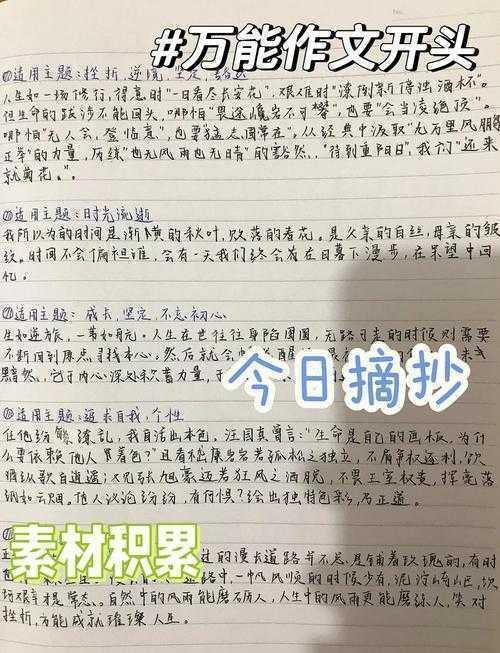 #万能作文开头
适用主题：挫折，逆境，坚定，豁达
人生如一场修行，得意时"一日看尽长安花"，艰难时"潦倒新停浊酒杯"。
但生命的跋涉不能回头，哪怕"畏途巉岩不可攀"，也要"会当凌绝顶"。
哪怕"无人会，登临意"，也要猛志固常在"，从经典中汲取"九万里风鹏
正举"的力量，历练"也无风雨也无晴"的豁然，"待到重阳日"，我们"还来
就菊花。"。
适用主题：时光流逝
我所以为的时间是渐黄的秋叶，败落的春花。是父亲的白丝，母亲的皱
纹。时间不会偏袒谁，会有一天我们终会在日暮下漫步，在呆望中回
忆。
适用主题：成长，坚定，不忘初心
生如逆旅，一苇以航。人生在世往往身陷囹圄，无路可走的时候则需要
不断回到原点寻找本心，然后就会
黯然，它于内心深处积蓄力量，于
今日摘抄
适用主题：追求自我，个性
任他纷繁缭乱，我自活出本色。汪国真曾言："生命是自己的画板，为什
么要依赖他人着色？"且看嵇康岩岩若孤松之独立，不屑争权逐利，饮
酒纵歌自逍遥；又见张旭豪迈若狂风之洒脱，不畏王字权贵，挥毫落
纸如云烟。他人议论纷纷，有何惧？绘出独特色彩，乃正道。
素材积累
的漫长道路并不总是铺着玫瑰的，有时
路中，一帆风顺的时候少有，泥泞
才是常态。自然中的风雨能磨砺人，人生中的风雨更能磨练人，笑对
挫折，方能成就璀璨人生。